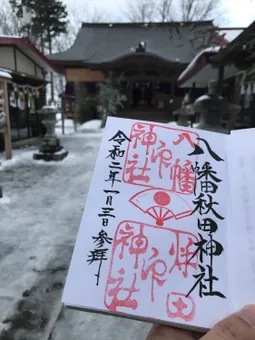 八幡秋田神社
八幡
神社
秋田
神社
令和二年一月三日参拝